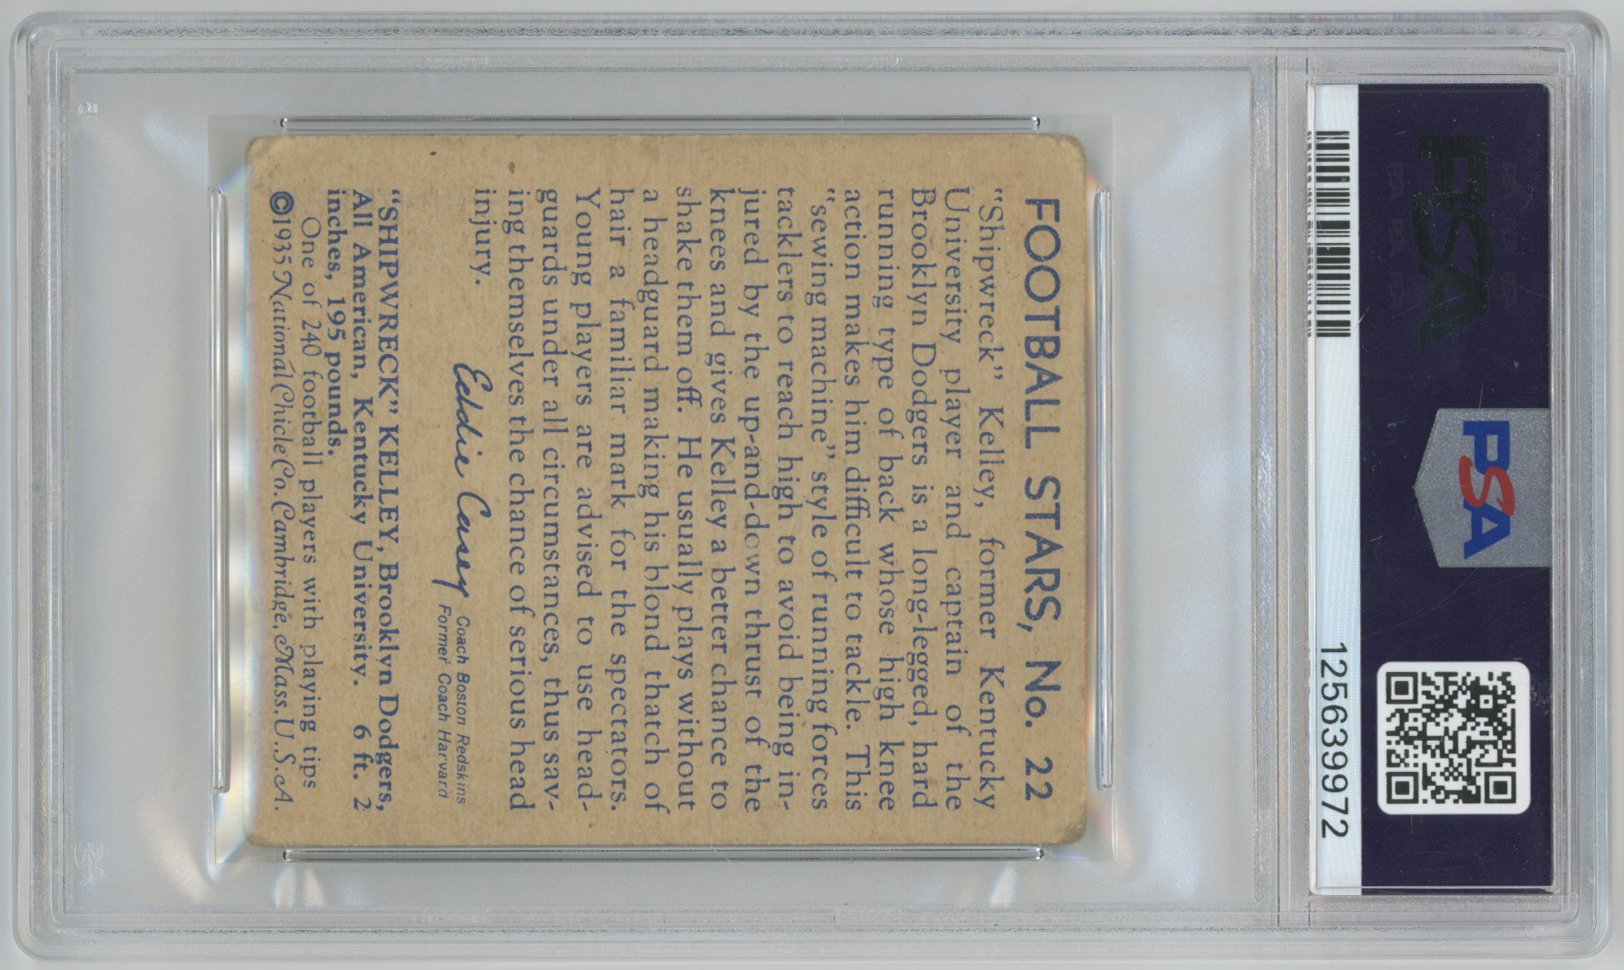 FOOTBALL STARS, No. 22
"Shipwreck" Kelley, former Kentucky
University player and captain of the
Brooklyn Dodgers is a long-legged, hard
running type of back whose high knee
action makes him difficult to tackle. This
"sewing machine" style of running forces
tacklers to reach high to avoid being in-
jured by the up-and-down thrust of the
knees and gives Kelley a better chance to
shake them off. He usually plays without
a headguard making his blond thatch of
hair a familiar mark for the spectators.
Young players are advised to use head-
guards under all circumstances, thus sav-
ing themselves the chance of serious head
injury.
Eddie Casey
Coach Boston Redskins
Former Coach Harvard
"SHIPWRECK" KELLEY, Brooklyn Dodgers,
All American, Kentucky University. 6 ft. 2
inches, 195 pounds.
One of 240 football players with playing tips
©1935 National Chicle Co. Cambridge, Mass. U.S.A.
PSA
PSA
12563997​2